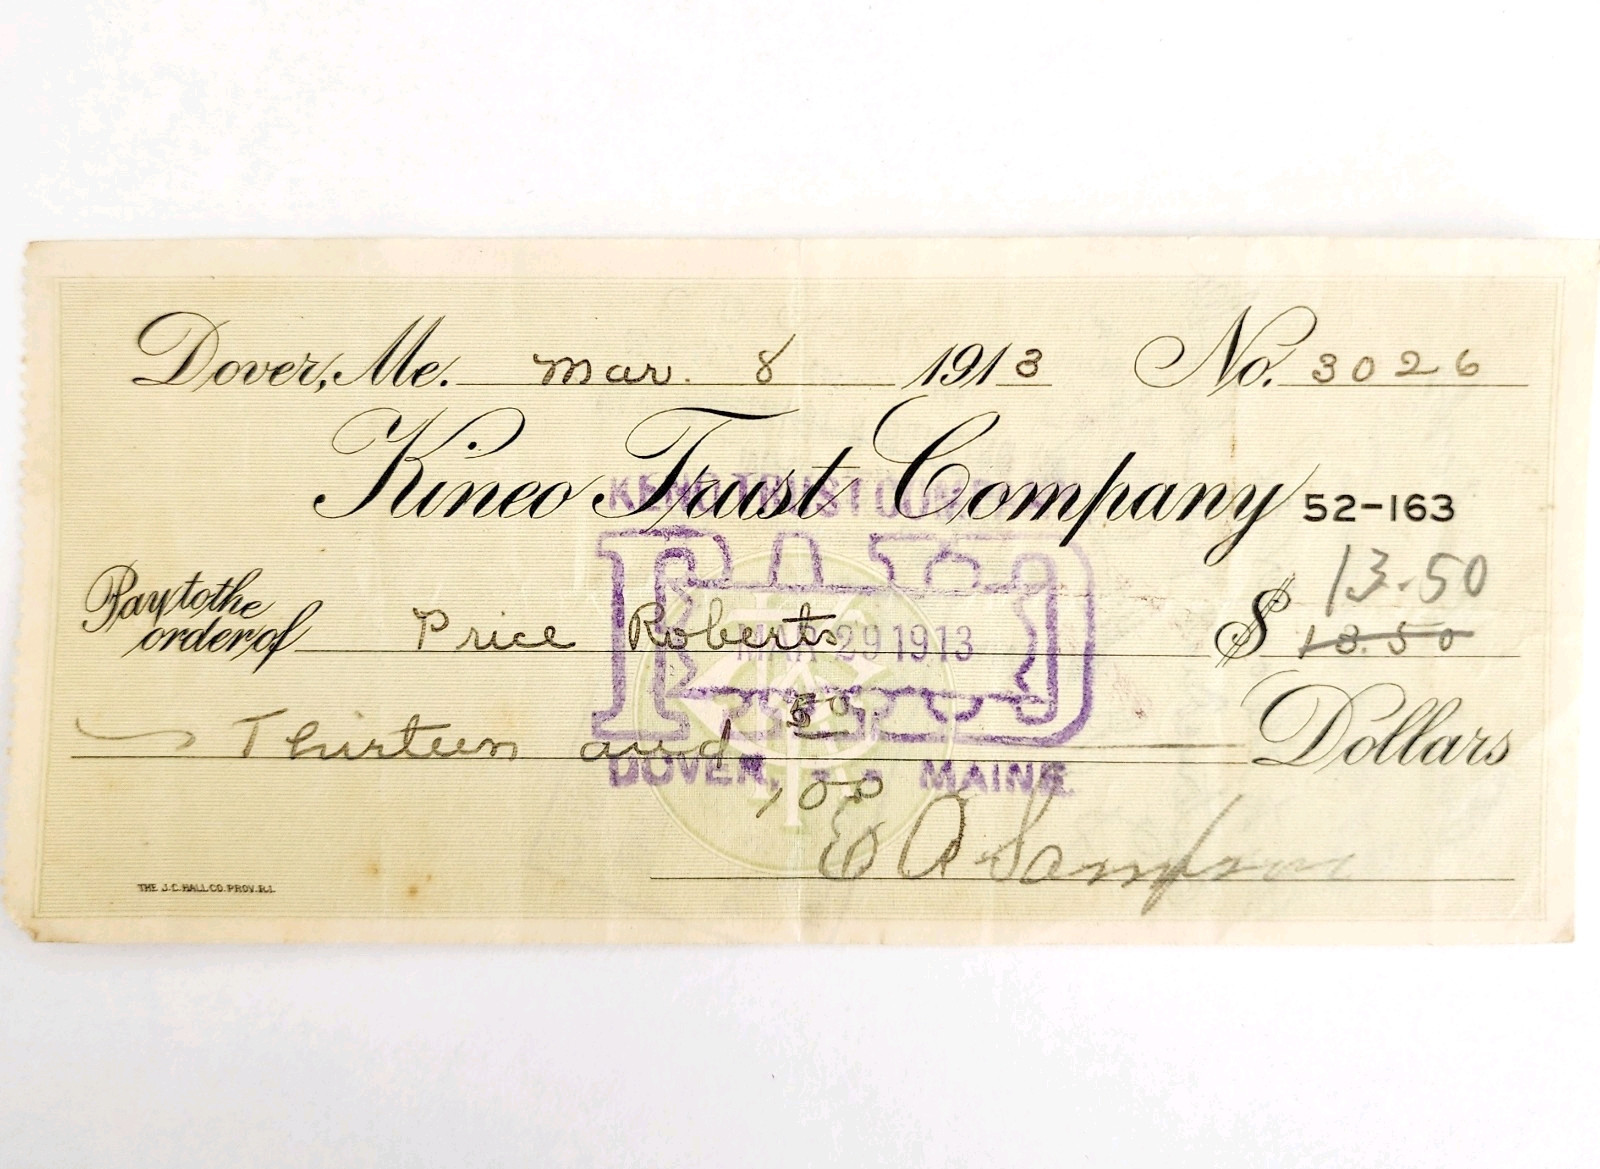 Dover, Me. Mar. 8 1913 No. 3026
Kineo Trust Company 52-163
KENO TRUST COMPANY
13.50
Pay to the order of Price Roberts $ 13.50
PAID
MAR 29 1913
Thirteen and 50/100 Dollars
DOVER, MAINE.
E A Sampson
THE J.C. HALL CO. PROV. R.I.